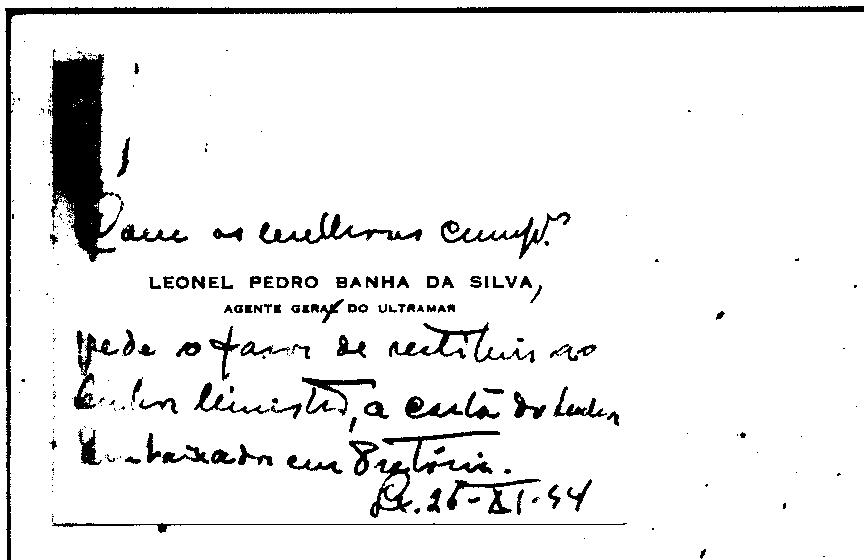 Com os melhores cump.os
LEONEL PEDRO BANHA DA SILVA,
AGENTE GERAL DO ULTRAMAR
pede o favor de restituir ao
Senhor Ministro, a carta do Senhor
Embaixador em Pretória.
Lx. 26-XI-54